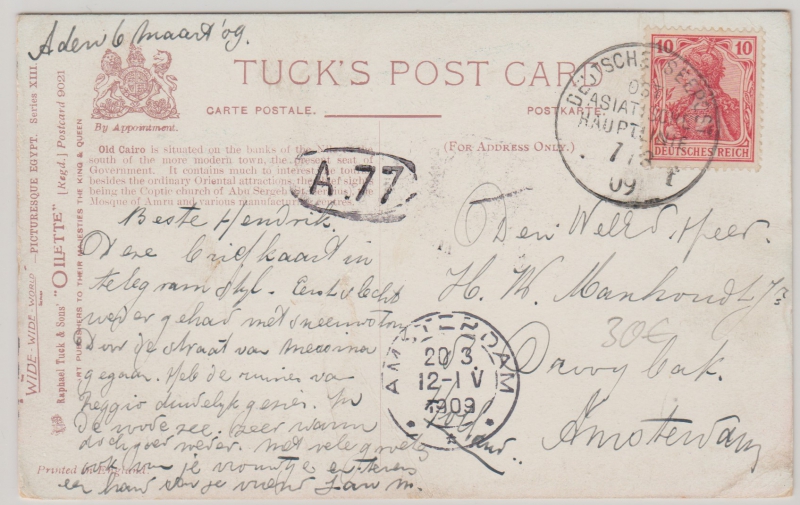 Aden 6 maart '09.
TUCK'S POST CARD
CARTE POSTALE.
POSTKARTE
By Appointment.
(FOR ADDRESS ONLY.)
Old Cairo is situated on the banks of the
south of the more modern town, the present seat of
Government. It contains much to interest the
besides the ordinary Oriental attractions, the chief sights
being the Coptic church of Abu Sergeh
Mosque of Amru and various manufacturing centres.
WIDE-WIDE-WORLD PICTURESQUE EGYPT. Series XIII.
Raphael Tuck & Sons' "OILETTE" [Regd.] Postcard 9021
ART PUBLISHERS TO THEIR MAJESTIES THE KING & QUEEN
Printed in England.
10 10
DEUTSCHES REICH
DEUTSCHE SEEPOST
OST
ASIATISCHE
HAUPTLINIE
7 3
09
A.77
AMSTERDAM
20 3
12-1 V
1909
Beste Hendrik.
Deze briefkaart in
telegramstyl. Eerst slecht
weder gehad met sneeuwstorm
Door de straat van messina
gegaan. Heb de ruines van
Reggio duidelijk gezien. In
de roode zee zeer warm
doch goed weder. Met vele groeten
ook aan je vrouwtje en
een hand van je vriend
Den Weled. Heer
H. W. Manhoudt Jr
30€
Amsterdam